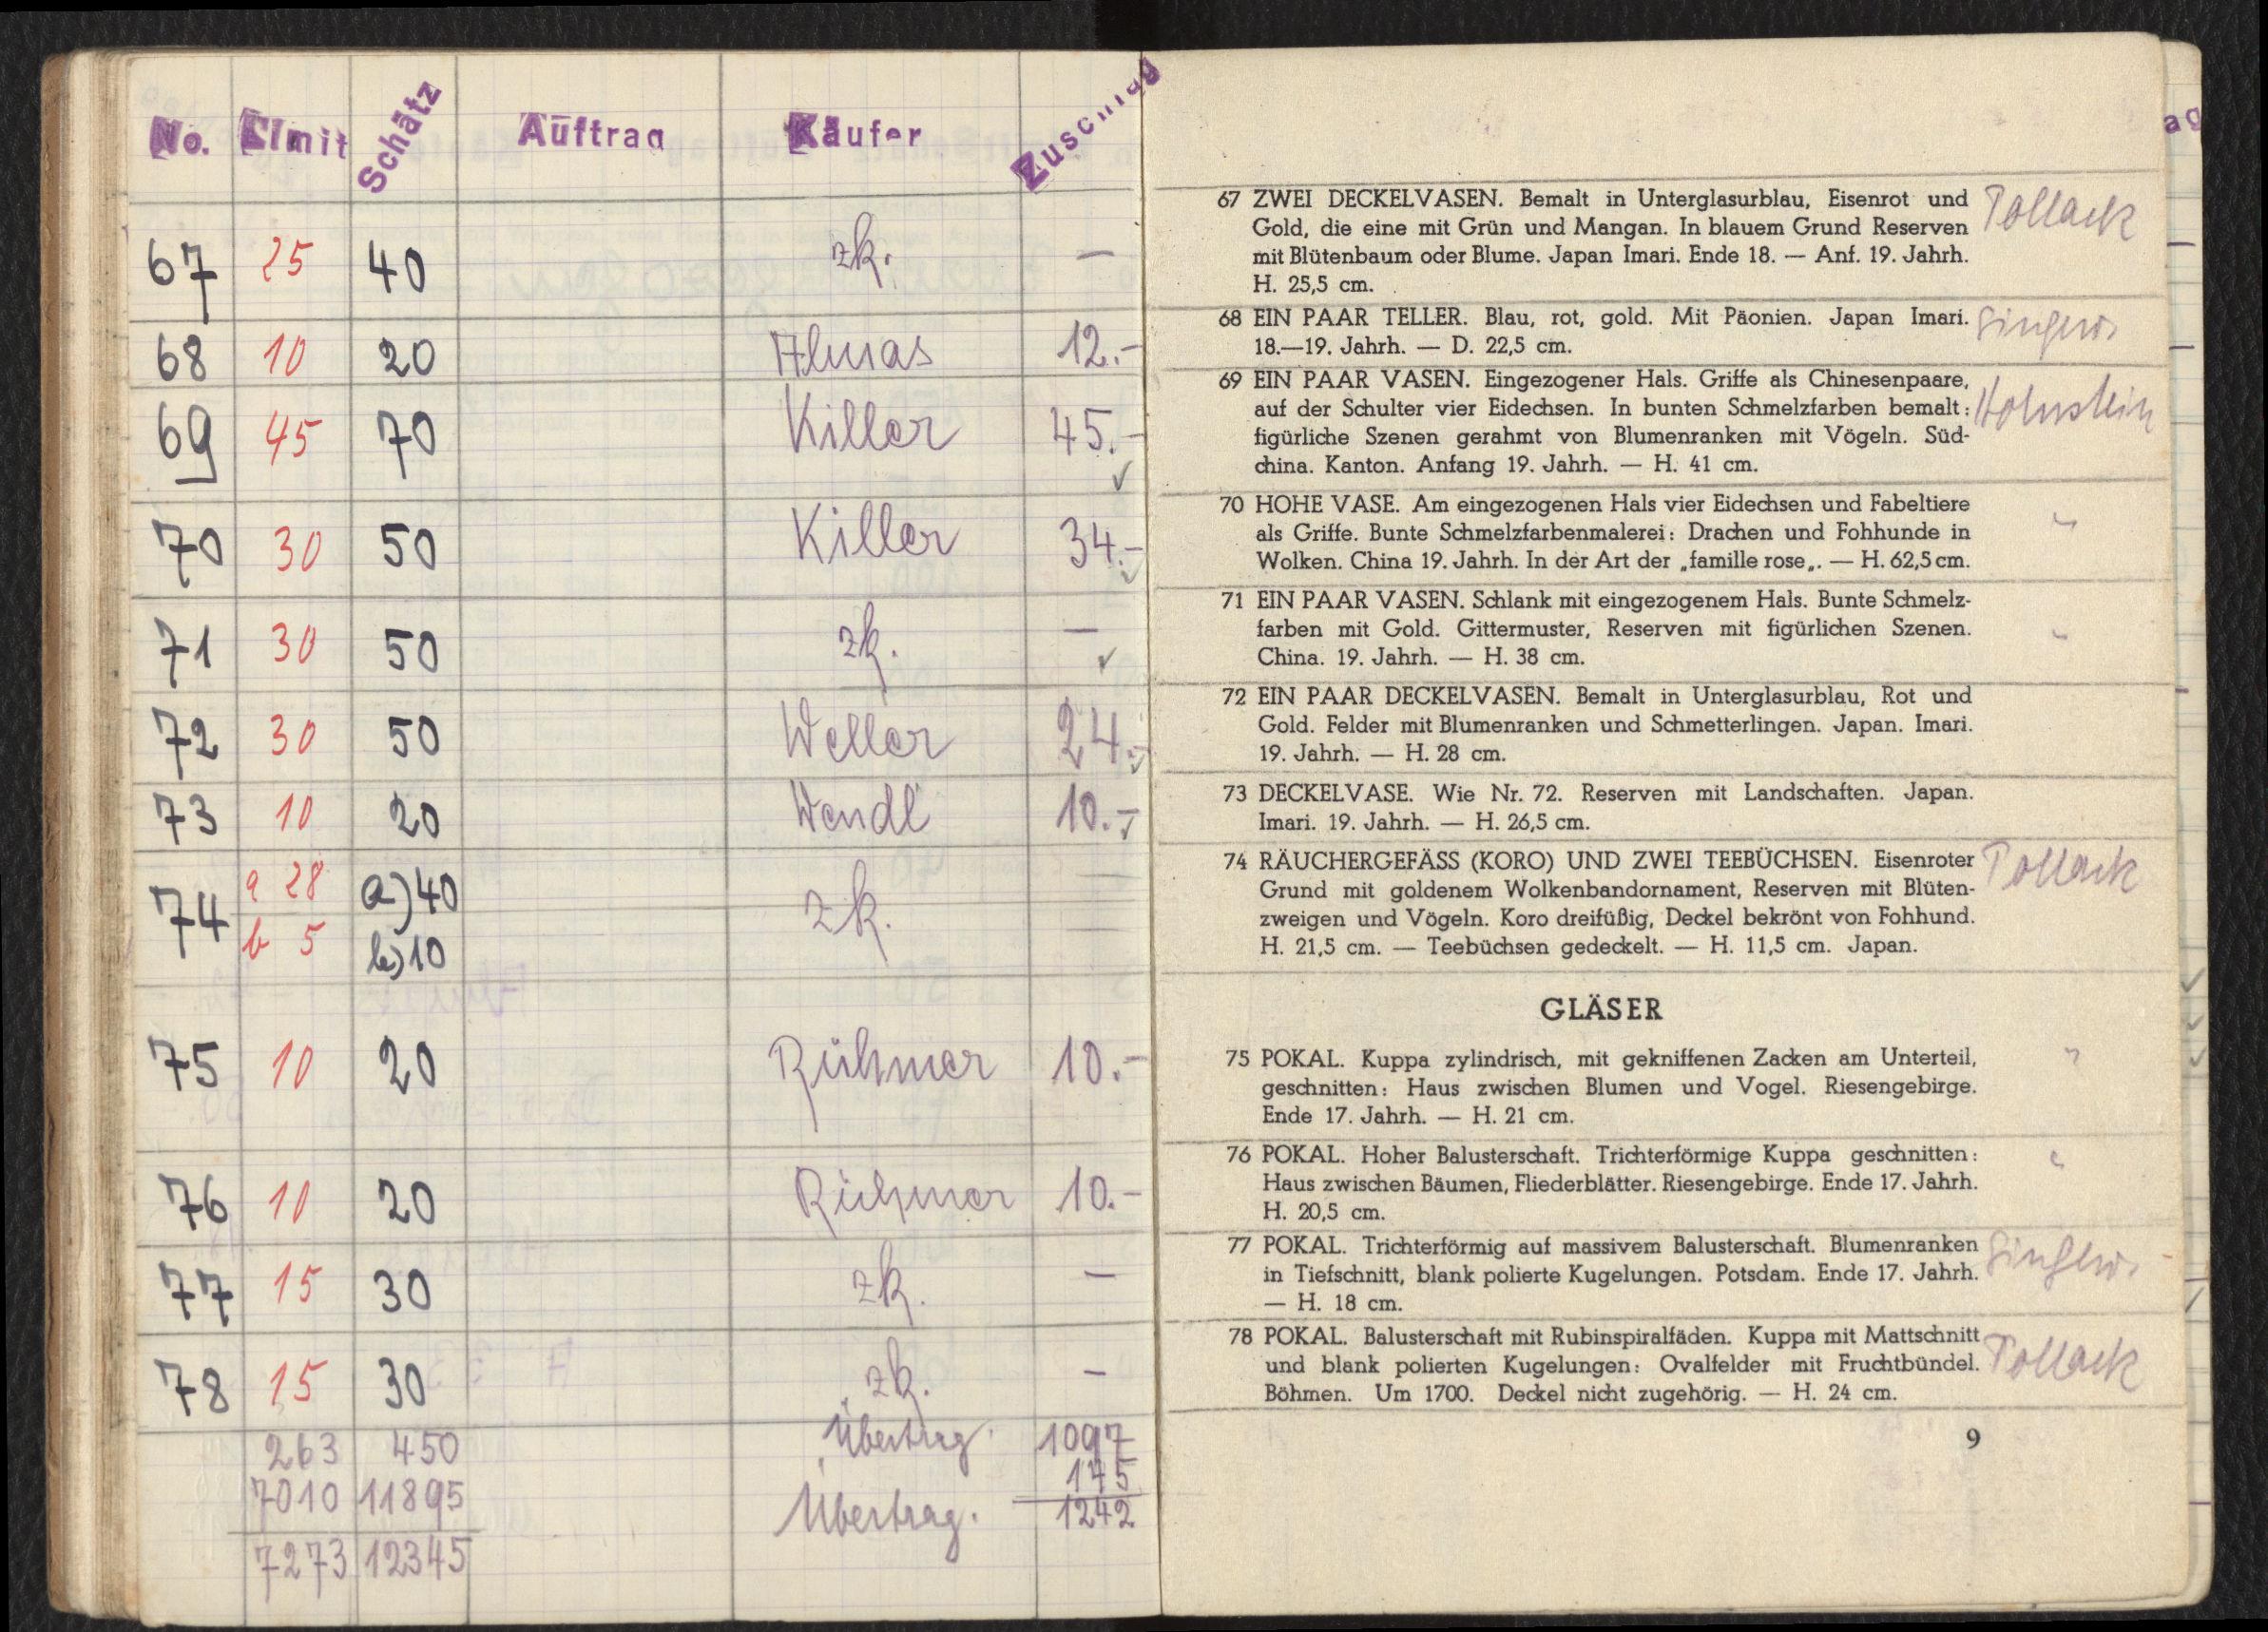 No. Limit Schätz Auftrag Käufer Zuschlag
67 25 40 zk. —
68 10 20 Almas 12.-
69 45 70 Killer 45.- ✓
70 30 50 Killer 34.- ✓
71 30 50 zk. — ✓
72 30 50 Weller 24.- ✓
73 10 20 Wendl 10.- ✓
74 a 28 a) 40 zk. —
b 5 b) 10 —
75 10 20 Rühmer 10.-
76 10 20 Rühmer 10.-
77 15 30 zk. —
78 15 30 zk. —
263 450 Übertrag. 1097
7010 11895 145
Übertrag. 1242
7273 12345
67 ZWEI DECKELVASEN. Bemalt in Unterglasurblau, Eisenrot und Pollack
Gold, die eine mit Grün und Mangan. In blauem Grund Reserven
mit Blütenbaum oder Blume. Japan Imari. Ende 18. — Anf. 19. Jahrh.
H. 25,5 cm.
68 EIN PAAR TELLER. Blau, rot, gold. Mit Päonien. Japan Imari.
18.—19. Jahrh. — D. 22,5 cm.
69 EIN PAAR VASEN. Eingezogener Hals. Griffe als Chinesenpaare,
auf der Schulter vier Eidechsen. In bunten Schmelzfarben bemalt:
figürliche Szenen gerahmt von Blumenranken mit Vögeln. Süd-
china. Kanton. Anfang 19. Jahrh. — H. 41 cm.
70 HOHE VASE. Am eingezogenen Hals vier Eidechsen und Fabeltiere
als Griffe. Bunte Schmelzfarbenmalerei: Drachen und Fohhunde in
Wolken. China 19. Jahrh. In der Art der „famille rose„. — H. 62,5 cm.
71 EIN PAAR VASEN. Schlank mit eingezogenem Hals. Bunte Schmelz-
farben mit Gold. Gittermuster, Reserven mit figürlichen Szenen.
China. 19. Jahrh. — H. 38 cm.
72 EIN PAAR DECKELVASEN. Bemalt in Unterglasurblau, Rot und
Gold. Felder mit Blumenranken und Schmetterlingen. Japan. Imari.
19. Jahrh. — H. 28 cm.
73 DECKELVASE. Wie Nr. 72. Reserven mit Landschaften. Japan.
Imari. 19. Jahrh. — H. 26,5 cm.
74 RÄUCHERGEFÄSS (KORO) UND ZWEI TEEBÜCHSEN. Eisenroter Pollack
Grund mit goldenem Wolkenbandornament, Reserven mit Blüten-
zweigen und Vögeln. Koro dreifüßig, Deckel bekrönt von Fohhund.
H. 21,5 cm. — Teebüchsen gedeckelt. — H. 11,5 cm. Japan.
GLÄSER
75 POKAL. Kuppa zylindrisch, mit gekniffenen Zacken am Unterteil, "
geschnitten: Haus zwischen Blumen und Vogel. Riesengebirge.
Ende 17. Jahrh. — H. 21 cm.
76 POKAL. Hoher Balusterschaft. Trichterförmige Kuppa geschnitten: "
Haus zwischen Bäumen, Fliederblätter. Riesengebirge. Ende 17. Jahrh.
H. 20,5 cm.
77 POKAL. Trichterförmig auf massivem Balusterschaft. Blumenranken
in Tiefschnitt, blank polierte Kugelungen. Potsdam. Ende 17. Jahrh.
— H. 18 cm.
78 POKAL. Balusterschaft mit Rubinspiralfäden. Kuppa mit Mattschnitt Pollack
und blank polierten Kugelungen: Ovalfelder mit Fruchtbündel.
Böhmen. Um 1700. Deckel nicht zugehörig. — H. 24 cm.
9
ag